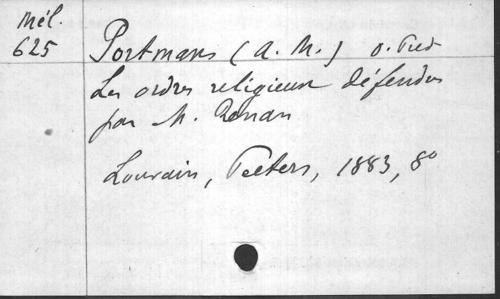 Mél.
625
Portmans (A. M.) o. Pred
Les ordres religieux défendus
par M. Renan
Louvain, Peeters, 1883, 8º